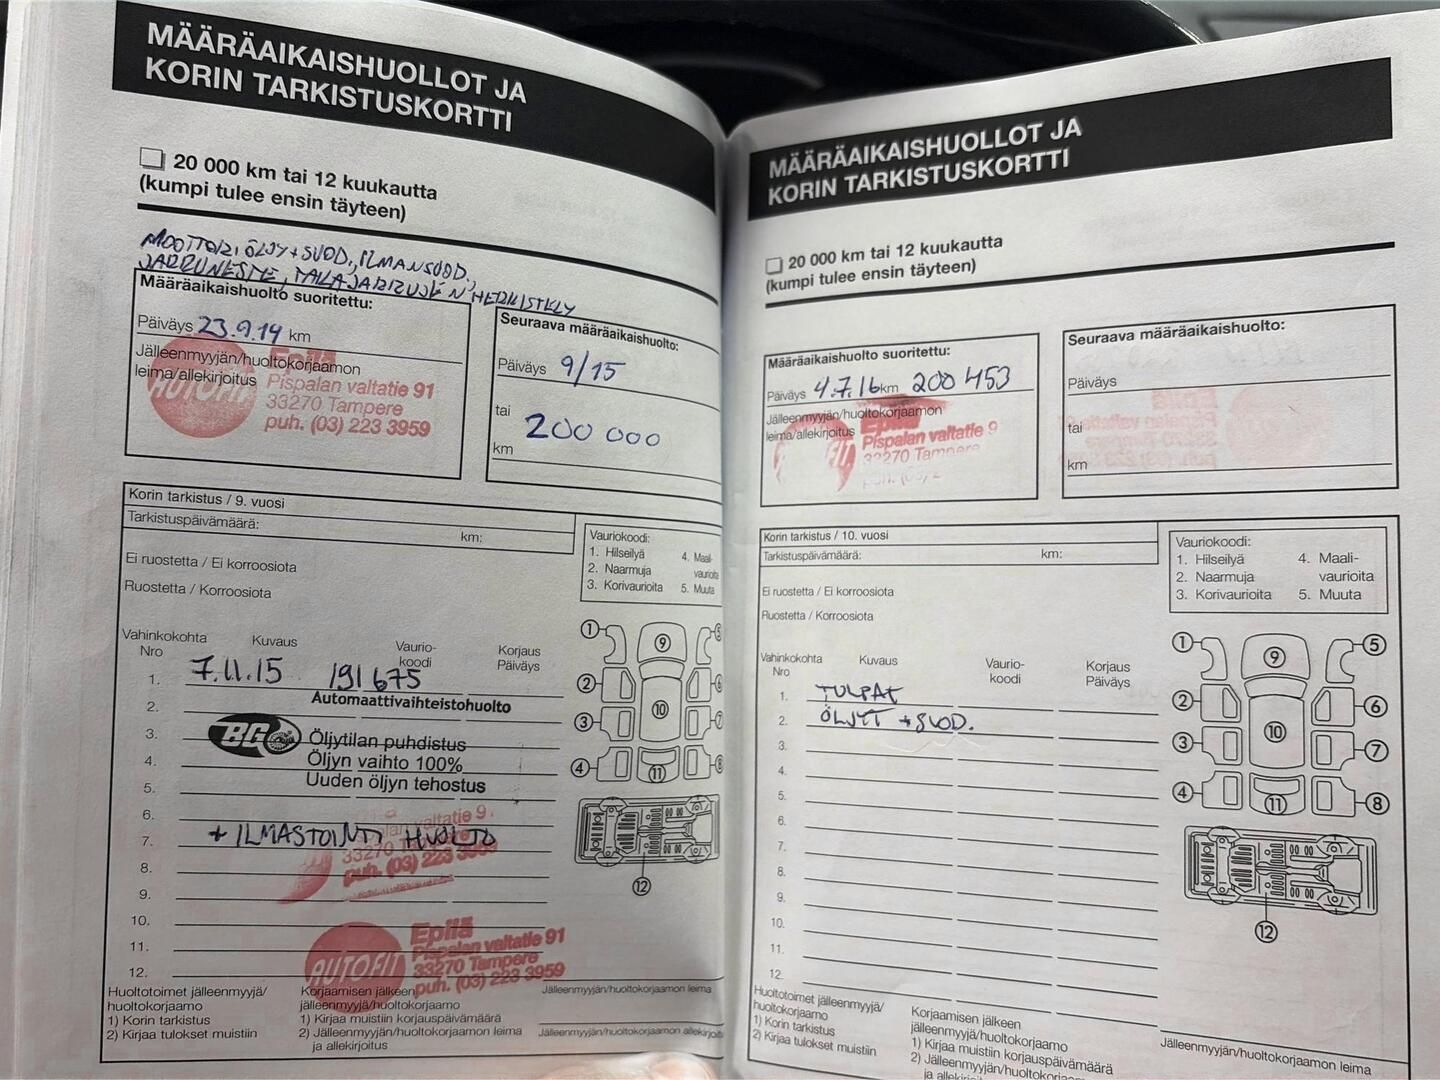 MÄÄRÄAIKAISHUOLLOT JA
KORIN TARKISTUSKORTTI
20 000 km tai 12 kuukautta
(kumpi tulee ensin täyteen)
MOOTTORIÖLJY + SUOD., ILMANSUOD.,
JARRUNESTE, TAKAJARRUJEN HERKISTELY
Määräaikaishuolto suoritettu:
Päiväys 23.9.14 km
Jälleenmyyjän/huoltokorjaamon
leima/allekirjoitus
AUTOFIT
Epilä
Pispalan valtatie 91
33270 Tampere
puh. (03) 223 3959
Seuraava määräaikaishuolto:
Päiväys 9/15
tai
200 000
km
Korin tarkistus / 9. vuosi
Tarkistuspäivämäärä: km:
Ei ruostetta / Ei korroosiota
Ruostetta / Korroosiota
Vauriokoodi:
1. Hilseilyä
2. Naarmuja
3. Korivaurioita
4. Maali-
vaurioita
5. Muuta
Vahinkokohta
Nro
Kuvaus
Vaurio-
koodi
Korjaus
Päiväys
1. 7.11.15 191 675
2. Automaattivaihteistohuolto
3. BG Öljytilan puhdistus
4. Öljyn vaihto 100%
5. Uuden öljyn tehostus
6.
7. + ILMASTOINTI HUOLTO
8.
9.
10.
11.
12.
valtatie 9
33270 Tampere
puh. (03) 223 3959
AUTOFIT
Epilä
Pispalan valtatie 91
33270 Tampere
puh. (03) 223 3959
1 2 3 4 5 6 7 8 9 10 11 12
Huoltotoimet jälleenmyyjä/
huoltokorjaamo
1) Korin tarkistus
2) Kirjaa tulokset muistiin
Korjaamisen jälkeen
jälleenmyyjä/huoltokorjaamo
1) Kirjaa muistiin korjauspäivämäärä
2) Jälleenmyyjän/huoltokorjaamon leima
ja allekirjoitus
Jälleenmyyjän/huoltokorjaamon leima
Jälleenmyyjän/huoltokorjaamon allekirjoit
MÄÄRÄAIKAISHUOLLOT JA
KORIN TARKISTUSKORTTI
20 000 km tai 12 kuukautta
(kumpi tulee ensin täyteen)
Määräaikaishuolto suoritettu:
Päiväys 4.7.16 km 200 453
Jälleenmyyjän/huoltokorjaamon
leima/allekirjoitus
Epilä
Pispalan valtatie 9
33270 Tampere
puh. (03) 2
Seuraava määräaikaishuolto:
Päiväys
tai
km
Korin tarkistus / 10. vuosi
Tarkistuspäivämäärä: km:
Ei ruostetta / Ei korroosiota
Ruostetta / Korroosiota
Vauriokoodi:
1. Hilseilyä
2. Naarmuja
3. Korivaurioita
4. Maali-
vaurioita
5. Muuta
Vahinkokohta
Nro
Kuvaus
Vaurio-
koodi
Korjaus
Päiväys
1. TULPAT
2. ÖLJYT + SUOD.
3.
4.
5.
6.
7.
8.
9.
10.
11.
12.
1 2 3 4 5 6 7 8 9 10 11 12
Huoltotoimet jälleenmyyjä/
huoltokorjaamo
1) Korin tarkistus
2) Kirjaa tulokset muistiin
Korjaamisen jälkeen
jälleenmyyjä/huoltokorjaamo
1) Kirjaa muistiin korjauspäivämäärä
2) Jälleenmyyjän/huoltokorjaamon leima
ja allekirjoitus
Jälleenmyyjän/huoltokorjaamon leima